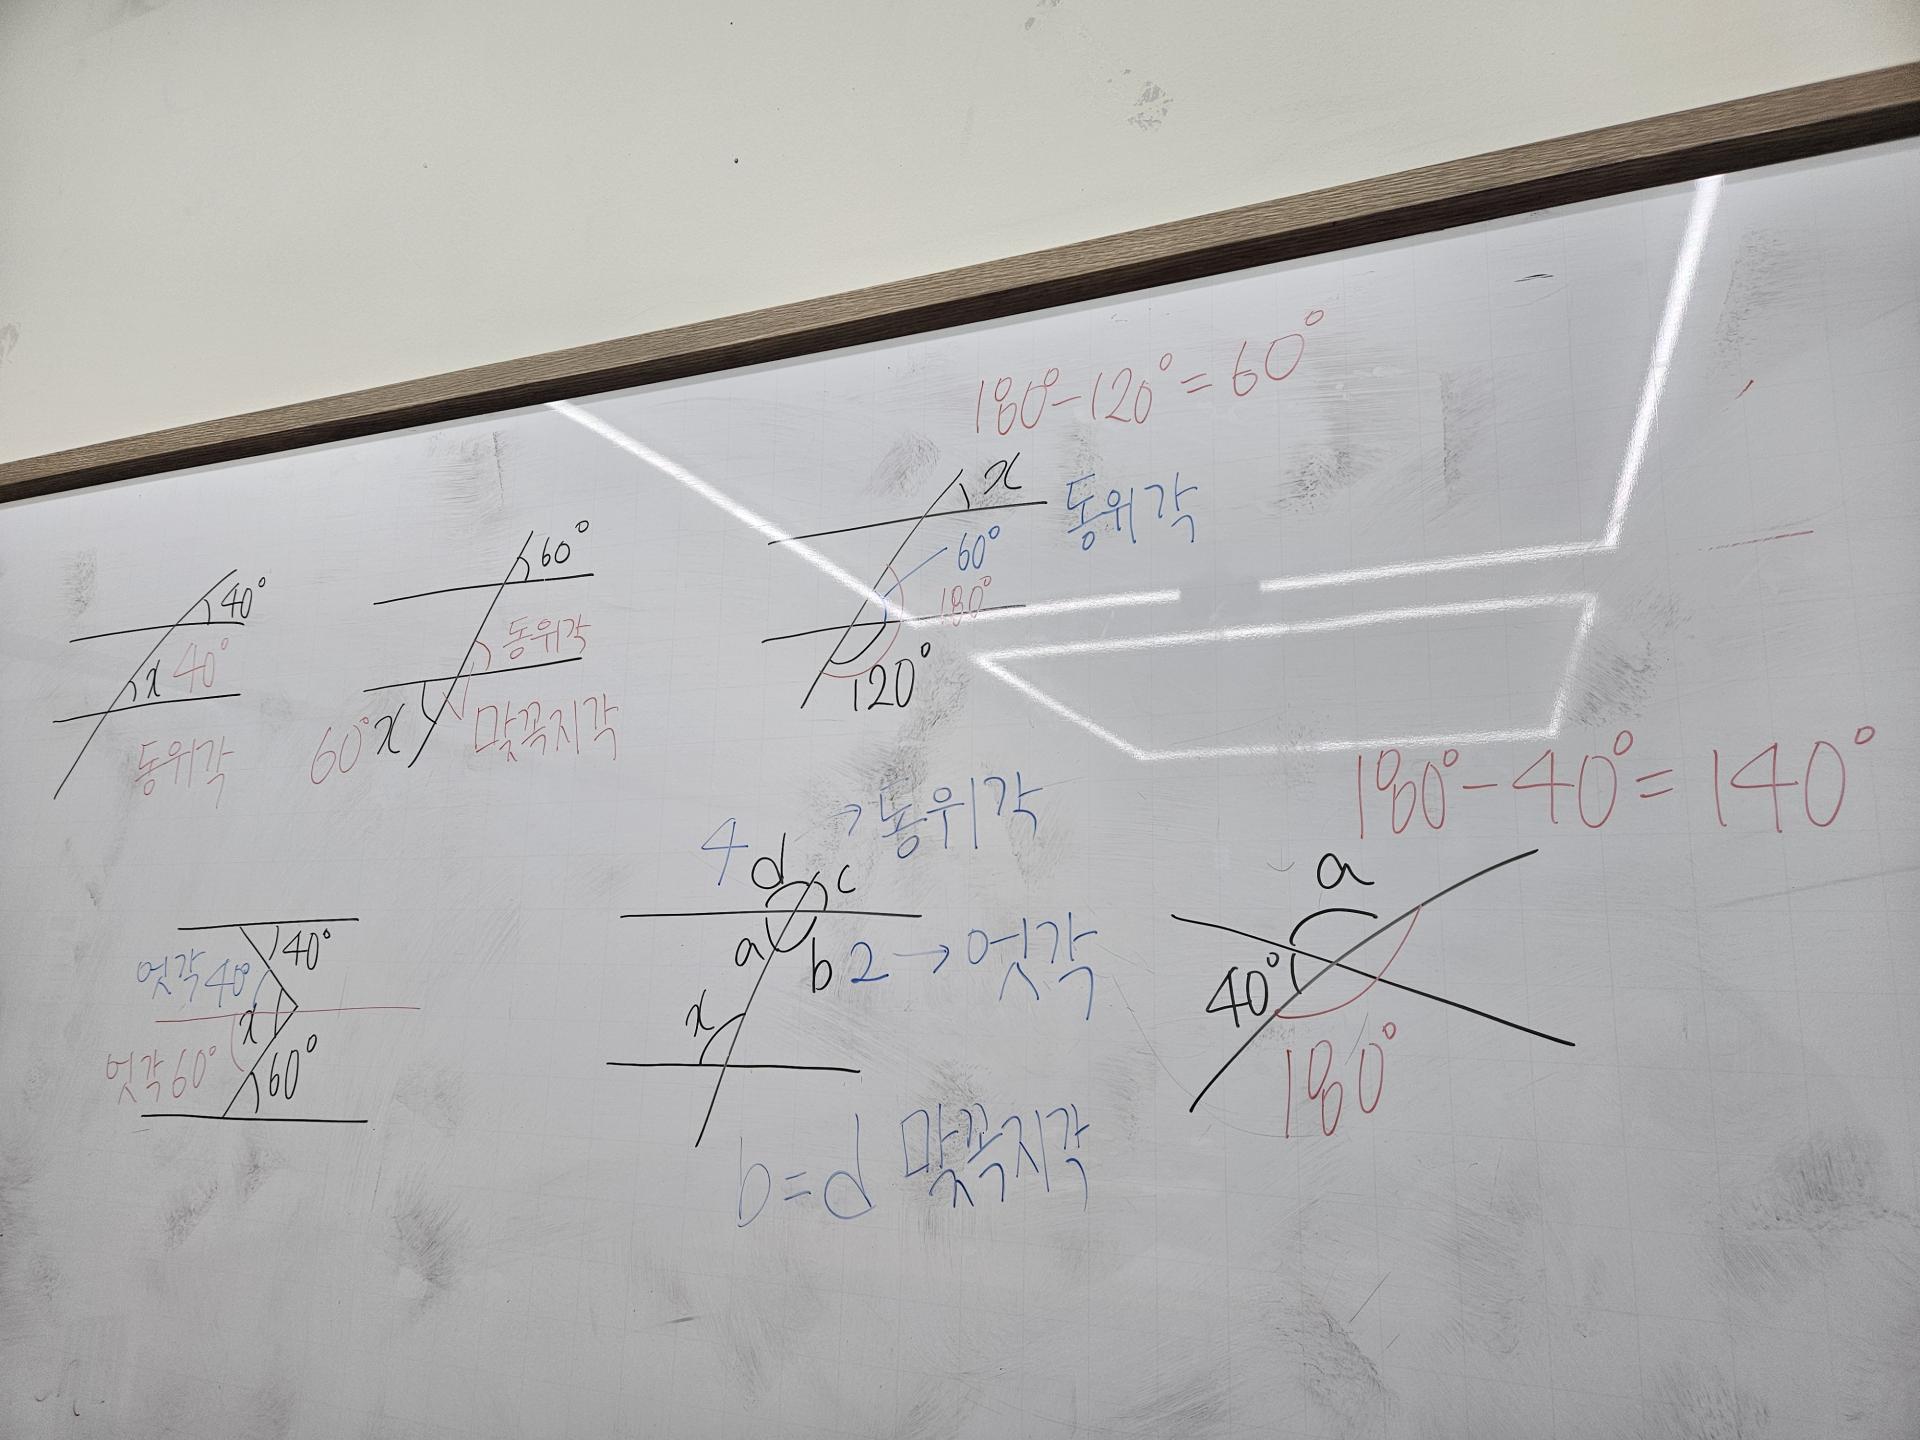 180°-120°=60°
x
동위각
60°
180°
120°
40°
x 40°
동위각
60°
동위각
60° x
맞꼭지각
180°-40°=140°
a
40°
180°
4 → 동위각
d
c
a
b 2 → 엇각
x
b=d 맞꼭지각
40°
엇각 40°
x
엇각 60°
60°